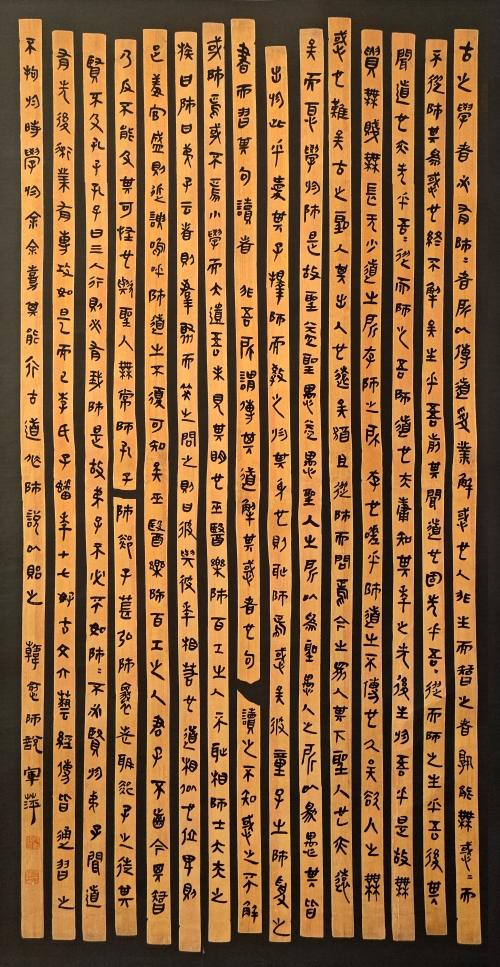 古之學者必有師=者所以傳道受業解惑也人非生而智之者孰能無惑=而
不從師其為惑也終不解矣生乎吾前其聞道也固先乎吾=從而師之生乎吾後其
聞道也亦先乎吾=從而師之吾師道也夫庸知其年之先後生於吾乎是故無
貴無賤無長无少道之所存師之所存也嗟乎師道之不傳也久矣欲人之無
惑也難矣古之聖人其出人也遠矣猶且從師而問焉今之眾人其下聖人也亦遠
矣而恥學於師是故聖益聖愚益愚聖人之所以為聖愚人之所以為愚其皆
出於此乎愛其子擇師而教之於其身也則恥師焉惑矣彼童子之師授之
書而習其句讀者非吾所謂傳其道解其惑者也句讀之不知惑之不解
或師焉或不焉小學而大遺吾未見其明也巫醫樂師百工之人不恥相師士大夫之
族曰師曰弟子云者則群聚而笑之問之則曰彼與彼年相若也道相似也位卑則
足羞官盛則近諛嗚呼師道之不復可知矣巫醫樂師百工之人君子不齒今其智
乃反不能及其可怪也歟聖人無常師孔子師郯子萇弘師襄老聃郯子之徒其
賢不及孔子孔子曰三人行則必有我師是故弟子不必不如師=不必賢於弟子聞道
有先後術業有專攻如是而已李氏子蟠年十七好古文六藝經傳皆通習之
不拘於時學於余余嘉其能行古道作師說以貽之 韓愈師說 軍萍